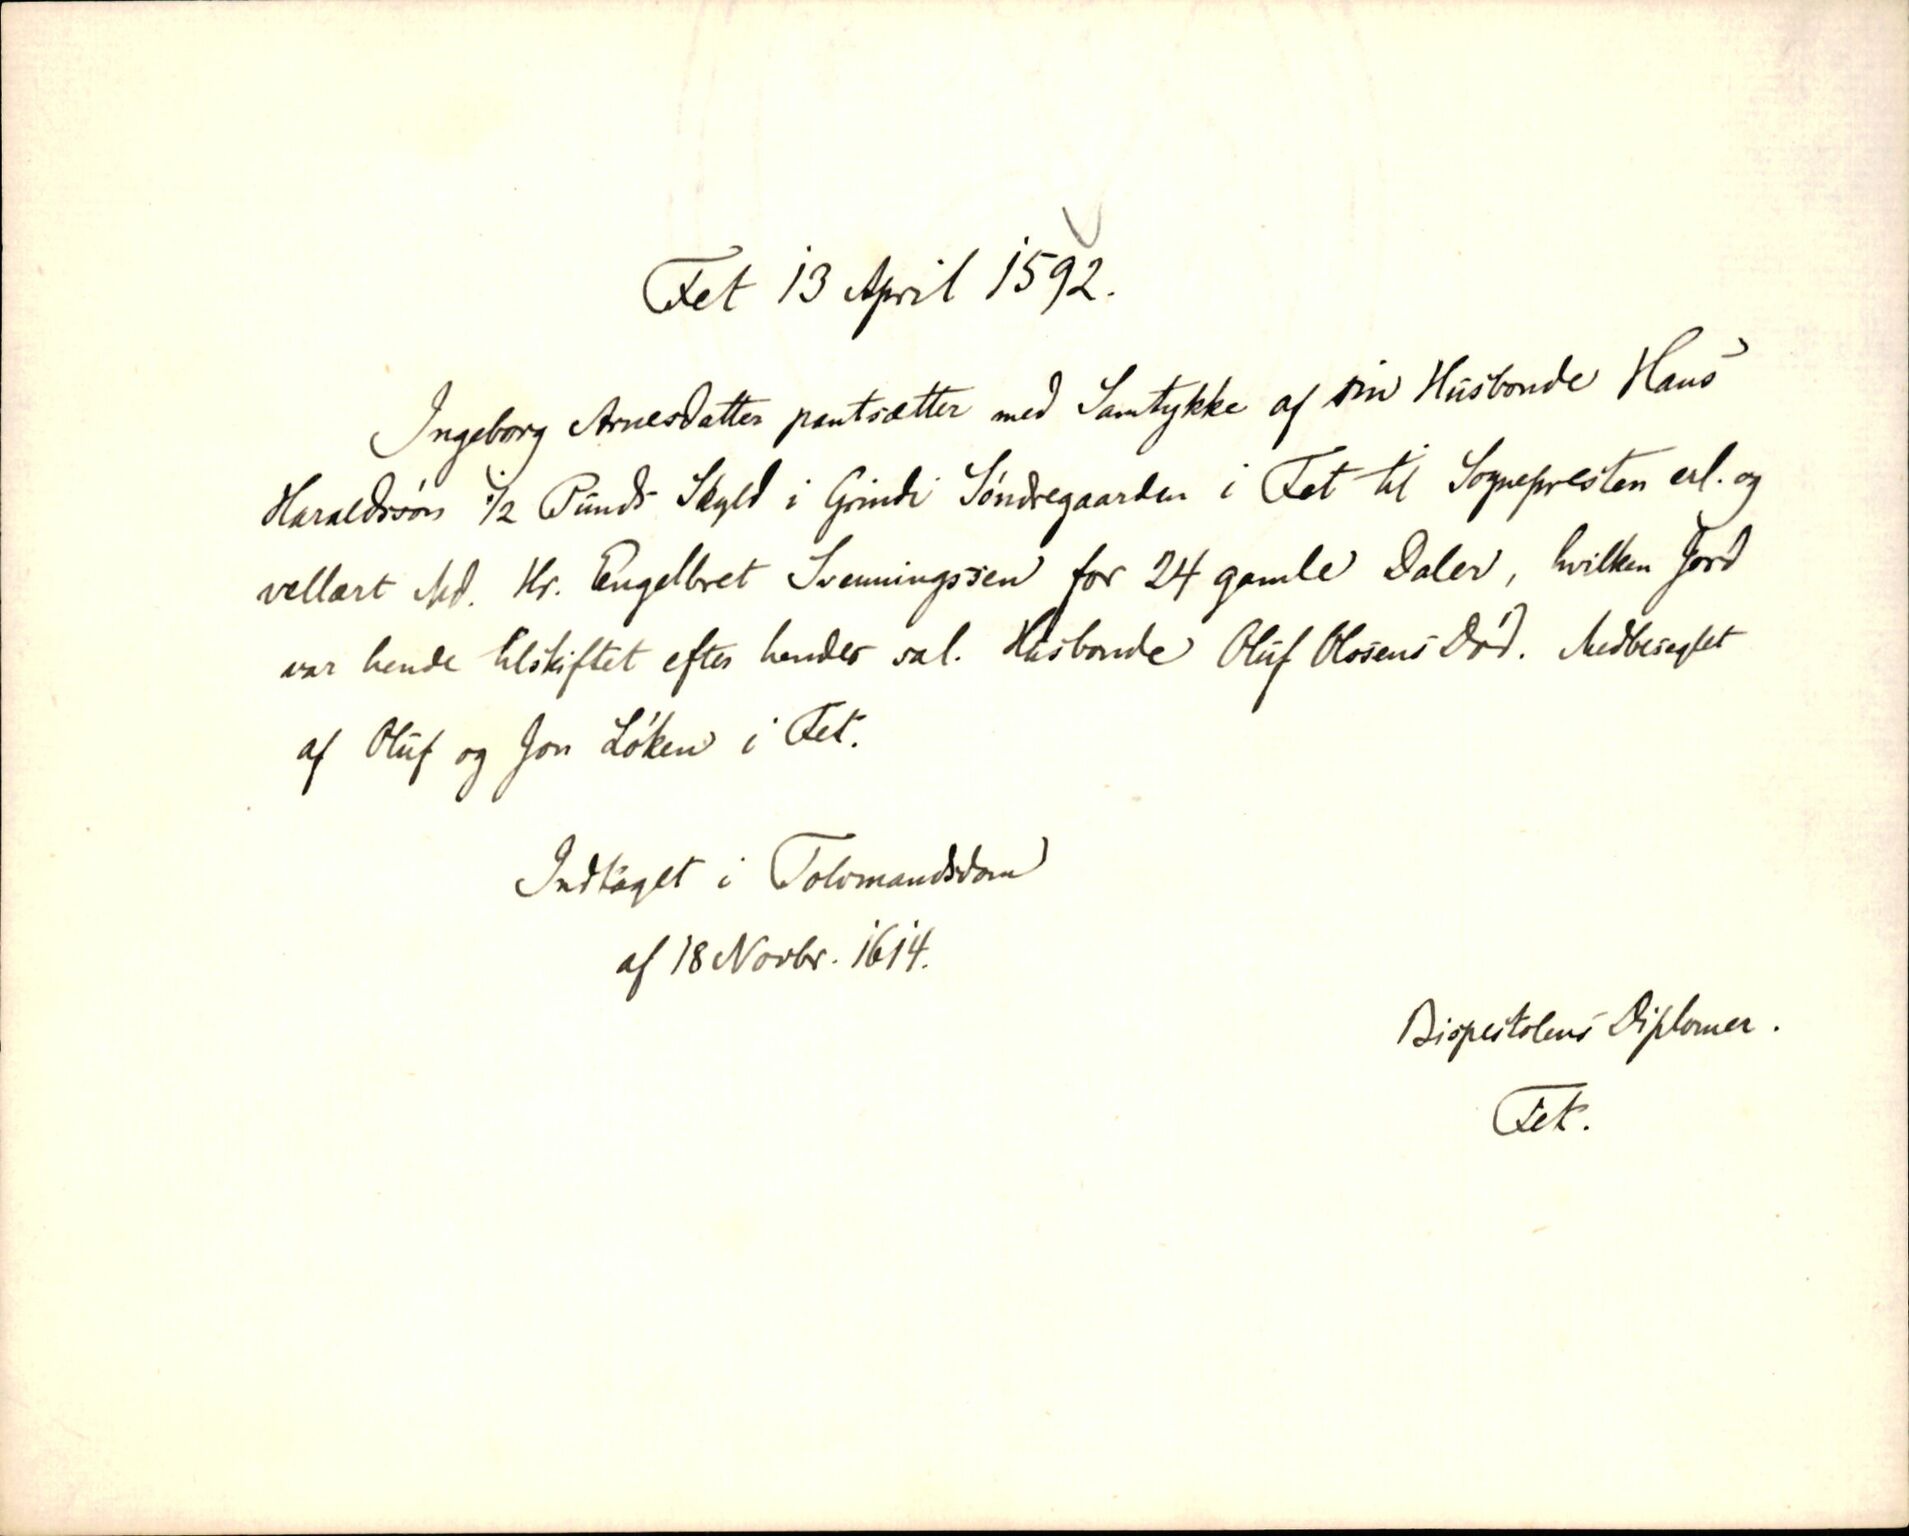 Fet 13 April 1592.
Ingeborg Arnesdatter pantsætter med Samtykke af sin Husbonde Hans
Haraldssøn 1/2 Punds Skyld i Grindi Søndregaarden i Fet til Sognepresten erl. og
vellært Md. Hr. Engelbret Svenningssen for 24 gamle Daler, hvilken Jord
var hende tilskiftet efter hendes sal. Husbonde Oluf Olosens Død. Medbeseglet
af Oluf og Jon Løken i Fet.
Indtaget i Tolvmandsdom
af 18 Novbr. 1614.
Bispestolens Diplomer.
Fet.